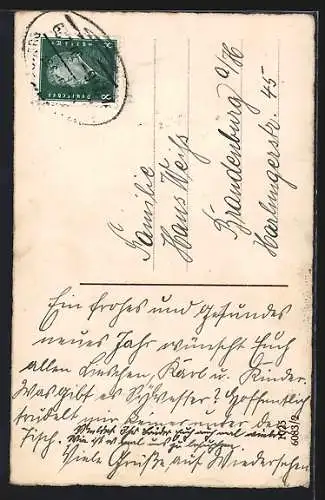 8 8
Deutsches
Reich
Familie
Hans Weiß
Brandenburg a/H
Harlungerstr. 45
Ein frohes und gesundes
neues Jahr wünscht Euch
allen Lieschen, Karl u. Kinder.
Was gibt es Sylvester? Hoffentlich
trudelt nur keiner unter den
Tisch.
Viele Grüße auf Wiedersehen
1923
6083/2